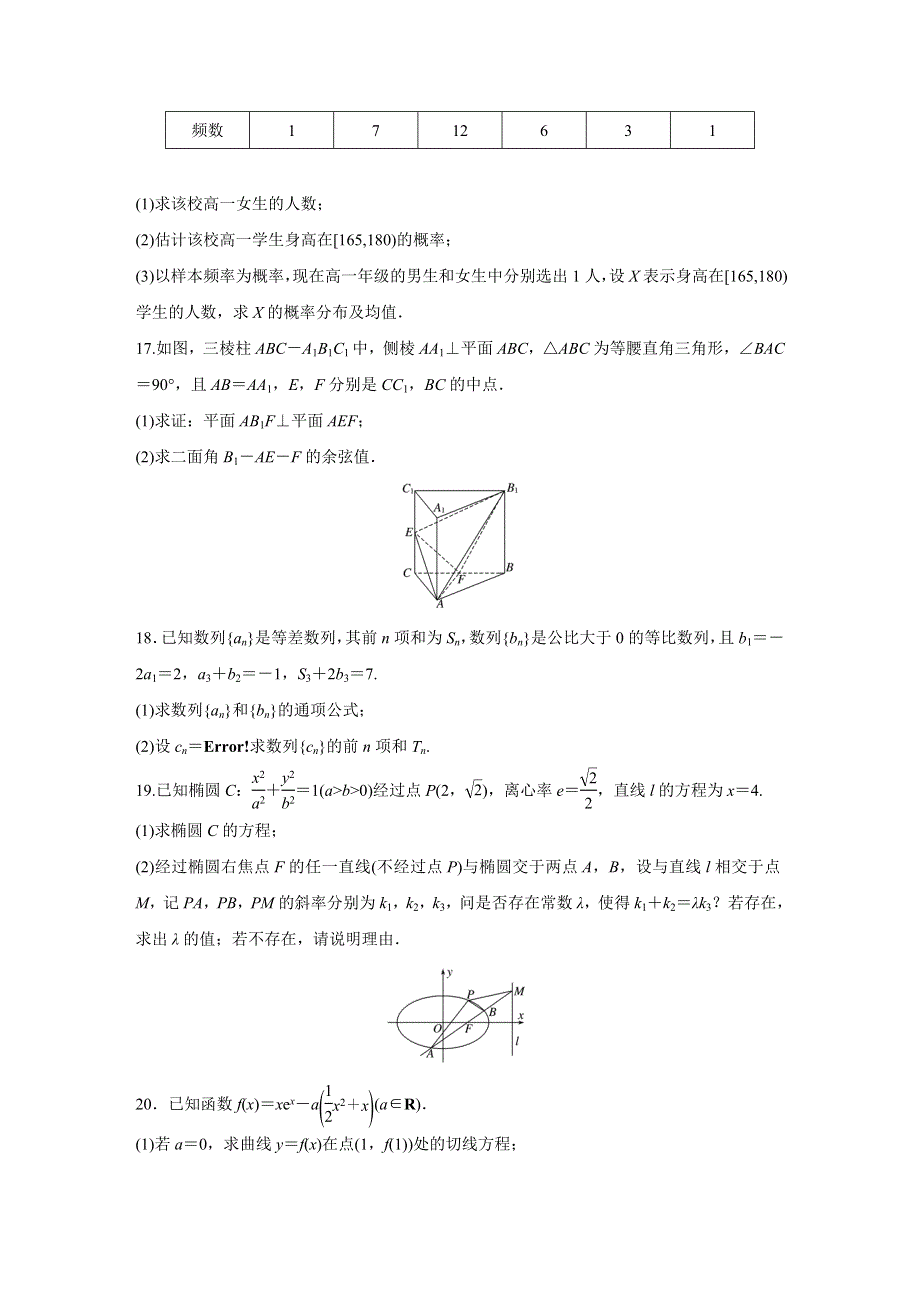 频数 1 7 12 6 3 1
(1)求该校高一女生的人数；
(2)估计该校高一学生身高在[165,180)的概率；
(3)以样本频率为概率，现在高一年级的男生和女生中分别选出1人，设X表示身高在[165,180)
学生的人数，求X的概率分布及均值．
17.如图，三棱柱ABC－A₁B₁C₁中，侧棱AA₁⊥平面ABC，△ABC为等腰直角三角形，∠BAC
＝90°，且AB＝AA₁，E，F分别是CC₁，BC的中点．
(1)求证：平面AB₁F⊥平面AEF；
(2)求二面角B₁－AE－F的余弦值．
C₁ B₁
A₁
E
C F B
A
18．已知数列{aₙ}是等差数列，其前n项和为Sₙ，数列{bₙ}是公比大于0的等比数列，且b₁＝－
2a₁＝2，a₃＋b₂＝－1，S₃＋2b₃＝7.
(1)求数列{aₙ}和{bₙ}的通项公式；
(2)设cₙ＝Error!求数列{cₙ}的前n项和Tₙ.
19.已知椭圆C：x²/a²＋y²/b²＝1(a>b>0)经过点P(2，√2)，离心率e＝√2/2，直线l的方程为x＝4.
(1)求椭圆C的方程；
(2)经过椭圆右焦点F的任一直线(不经过点P)与椭圆交于两点A，B，设与直线l相交于点
M，记PA，PB，PM的斜率分别为k₁，k₂，k₃，问是否存在常数λ，使得k₁＋k₂＝λk₃？若存在，
求出λ的值；若不存在，请说明理由．
y
P M
B
O F x
A l
20．已知函数f(x)＝xeˣ－a(1/2x²＋x)(a∈R)．
(1)若a＝0，求曲线y＝f(x)在点(1，f(1))处的切线方程；